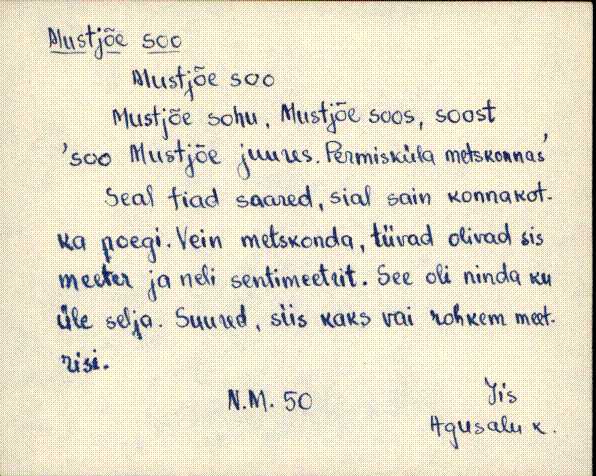 Mustjõe soo
Mustjõe soo
Mustjõe sohu, Mustjõe soos, soost
'soo Mustjõe juures. Permisküla metskonnas'
Seal tiad saared, sial sain konnakot-
ka poegi. Vein metskonda, tüvad olivad sis
meeter ja neli sentimeetrit. See oli ninda ku
üle selja. Suured, siis kaks vai rohkem meet-
risi.
N.M. 50
Jis
Agusalu k.